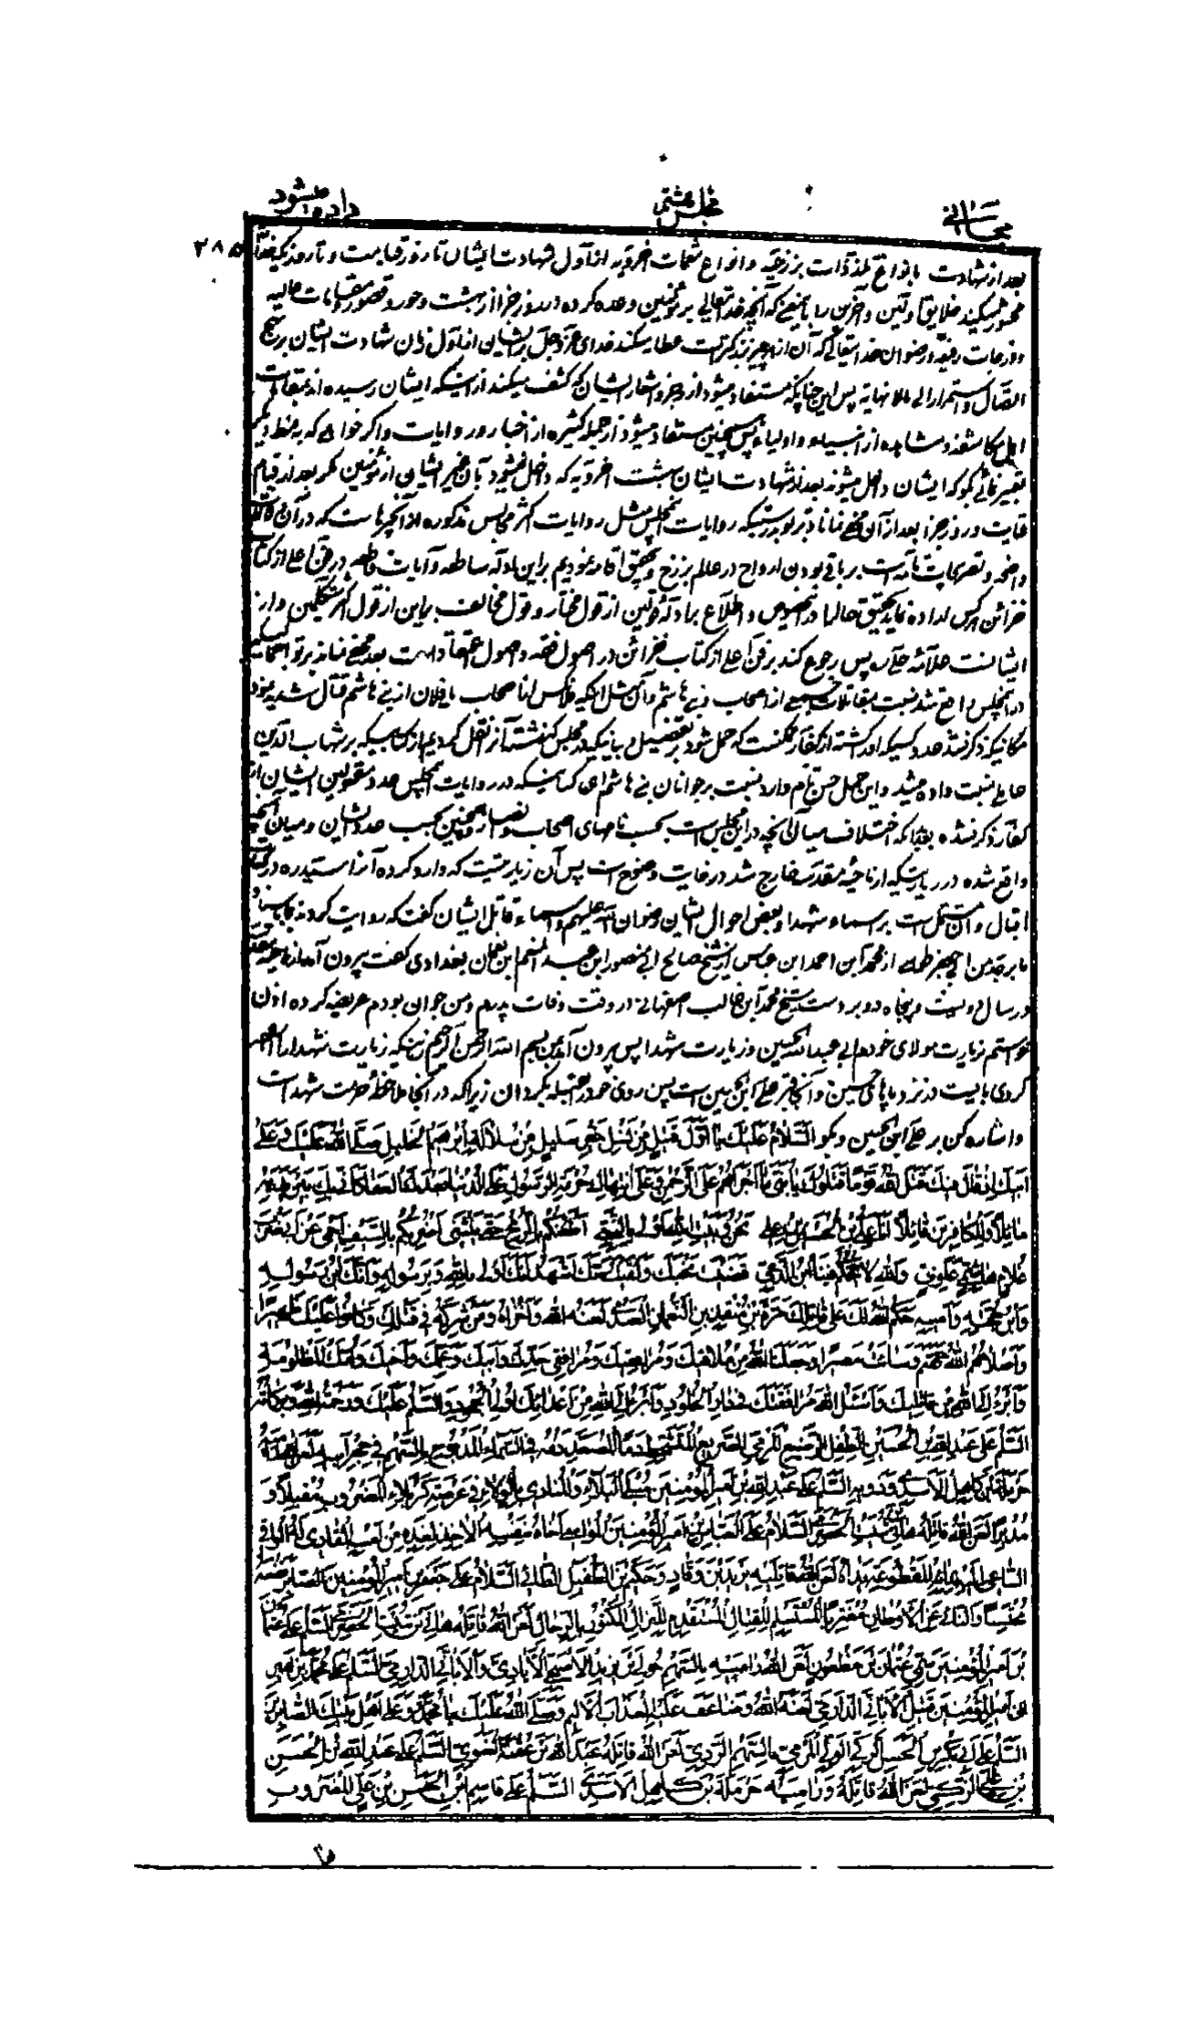 مجلس هشتم
داده میشود
۲۸۵
بعد از شهادت بانواع تلذذات برزخیه و انواع نعمات اخرویه از اول شهادت ایشان تا روز قیامت و تا روزیکه خدا
محشور میکند خلایق اولین و آخرین را باینمعنی که آنچه خدایتعالی بر مؤمنین وعده کرده در روز جزا از بهشت و حور و قصور و مقامات عالیه
و درجات رفیعه و رضوان خدایتعالی که آن از هر چیز بزرگتر است عطا میکند خدای عزوجل بر ایشان از اول زمان شهادت ایشان بر نهج
اتصال و استمرار الی مالا نهایة پس این چنانکه مستفاد میشود از رجز و اشعار ایشان که کشف میکند از اینکه ایشان رسیده اند بمقامات
اهل مکاشفه و مشاهده از انبیاء و اولیاء پس همچنین مستفاد میشود از جمله کثیره از اخبار و روایات و اگر خواهی که به لفظ دیگر
تعبیر نمائی بگو که ایشان داخل میشوند بعد از شهادت ایشان بهشت اخرویه که داخل نمیشود بآن غیر ایشان از مؤمنین مگر بعد از قیام
قیامت و روز جزا بعد از آن مخفی نماناد بر تو بدرستیکه روایات مجلس مثل روایات اکثر مجالس مذکوره از آنچیزها است که در آن دلالت
واضحه و تصریحات تامه است بر باقی بودن ارواح در عالم برزخ و تحقیق اقامه نمودیم بر این ادله ساطعه و آیات قاطعه در فن اعلی از کتاب
خزائن هر کس اراده نماید تحقیق حال در اینخصوص و اطلاع بر ادله قولین از قول مختار و قول مخالف بر این از قول اکثر متکلمین و از
ایشانست علامه حلی ره پس رجوع کند بر فن اعلی از کتاب خزائن در اصول فقه و اصول اعتقادات بعد مخفی نماند بر تو آنچنانیکه
در مجلس واقع شد نسبت بمقاتلات جمیعی از اصحاب و بنی هاشم و آن مثل اینکه فلانکس از اصحاب یا فلان از بنی هاشم قتال شدید نمود
مکانیکه ذکر نشد عدد کسیکه او کشته از کفار ممکنست که حمل شود بر تفصیل و بیانیکه در مجلس گذشته آنرا نقل کردیم از کتابیکه بر شهاب الدین
عاملی نسبت داده میشد و این حمل حسن تام دارد نسبت بر جوانان بنی هاشم ای کسانیکه در روایات مجلس عدد مقتولین ایشان از
کفار ذکر نشده بعد که اختلاف میان آنچه در این مجلس است بحسب نامهای اصحاب و انصار و همچنین بحسب عدد ایشان و میان آنچه
واقع شده در زیارتیکه از ناحیه مقدسه خارج شد در غایت وضوح است پس آن زیارتیست که وارد کرده آنرا سید ره در کتاب
اقبال و آن مشتمل است بر اسماء شهدا و بعض احوال ایشان رضوان الله علیهم و اسماء قاتل ایشان گفت که روایت کردند
ما بر جد من ابی جعفر طوسی از محمد ابن احمد ابن عیاش از شیخ صالح ابی منصور ابن عبد المنعم ابن نعمان بغدادی گفت بیرون آمد از ناحیه مقدسه
در سال دویست و پنجاه دو بر دست شیخ محمد ابن غالب اصفهانی در وقت وفات پدرم و من جوان بودم عریضه کرده اذن
خواستم زیارت مولای خودم ابی عبد الله الحسین و زیارت شهدا پس بیرون آمد بمن بسم الله الرحمن الرحیم زمانیکه زیارت شهدا را اراده
کردی بایست در نزد پاهای حسین و آنجا قبر علی ابن الحسین است پس روی خود را بقبله بگردان زیرا که در آنجا ملاحظه حرمت شهدا است
و اشاره کن بر علی ابن الحسین و بگو السَّلَامُ عَلَيْكَ يَا أَوَّلَ قَتِيلٍ مِنْ نَسْلِ خَيْرِ سَلِيلٍ مِنْ سُلَالَةِ إِبْرَاهِيمَ الْخَلِيلِ صَلَّى اللهُ عَلَيْكَ وَعَلَى
أَبِيكَ إِذْ قَالَ فِيكَ قَتَلَ اللهُ قَوْمًا قَتَلُوكَ يَا بُنَيَّ مَا أَجْرَأَهُمْ عَلَى الرَّحْمٰنِ وَعَلَى انْتِهَاكِ حُرْمَةِ الرَّسُولِ عَلَى الدُّنْيَا بَعْدَكَ الْعَفَا كَأَنِّي بِكَ بَيْنَ يَدَيْهِ
مَاثِلًا وَلِلْكَافِرِينَ قَائِلًا أَنَا عَلِيُّ بْنُ الْحُسَيْنِ بْنِ عَلِي نَحْنُ وَبَيْتِ اللهِ أَوْلَى بِالنَّبِي أَطْعَنُكُمْ بِالرُّمْحِ حَتَّى يَنْثَنِي أَضْرِبُكُمْ بِالسَّيْفِ أَحْمِي عَنْ أَبِي ضَرْبَ
غُلَامٍ هَاشِمِيٍّ عَرَبِي وَاللهِ لَا يَحْكُمُ فِينَا ابْنُ الدَّعِي حَتَّى قَضَيْتَ نَحْبَكَ وَلَقِيتَ رَبَّكَ أَشْهَدُ أَنَّكَ أَوْلَى بِاللهِ وَبِرَسُولِهِ وَأَنَّكَ ابْنُ رَسُولِهِ
وَابْنُ حُجَّتِهِ وَأَمِينِهِ حَكَمَ اللهُ لَكَ عَلَى قَاتِلِكَ مُرَّةَ بْنِ مُنْقِذِ بْنِ النُّعْمَانِ الْعَبْدِيِّ لَعَنَهُ اللهُ وَأَخْزَاهُ وَمَنْ شَرِكَهُ فِي قَتْلِكَ وَكَانُوا عَلَيْكَ ظَهِيرًا
وَأَصْلَاهُمُ اللهُ جَهَنَّمَ وَسَاءَتْ مَصِيرًا وَجَعَلَنَا اللهُ مِنْ مُلَاقِيكَ وَمُرَافِقِيكَ وَمُرَافِقِي جَدِّكَ وَأَبِيكَ وَعَمِّكَ وَأَخِيكَ وَأُمِّكَ الْمَظْلُومَةِ
وَأَبْرَأُ إِلَى اللهِ مِنْ قَاتِلِيكَ وَأَسْئَلُ اللهَ مُرَافَقَتَكَ فِي دَارِ الْخُلُودِ وَأَبْرَأُ إِلَى اللهِ مِنْ أَعْدَائِكَ أُولِي الْجُحُودِ وَالسَّلَامُ عَلَيْكَ وَرَحْمَةُ اللهِ وَبَرَكَاتُهُ
السَّلَامُ عَلَى عَبْدِ اللهِ بْنِ الْحُسَيْنِ الطِّفْلِ الرَّضِيعِ الْمَرْمِيِّ الصَّرِيعِ الْمُتَشَحِّطِ دَمًا الْمُصَعَّدِ دَمُهُ فِي السَّمَاءِ الْمَذْبُوحِ بِالسَّهْمِ فِي حِجْرِ أَبِيهِ لَعَنَ اللهُ رَامِيَهُ
حَرْمَلَةَ بْنَ كَاهِلٍ الْأَسَدِيَّ وَذَوِيهِ السَّلَامُ عَلَى عَبْدِ اللهِ بْنِ أَمِيرِ الْمُؤْمِنِينَ مُبْلَى الْبَلَاءِ وَالْمُنَادِي بِالْوَلَاءِ فِي عَرْصَةِ كَرْبَلَاءَ الْمَضْرُوبِ مُقْبِلًا وَ
مُدْبِرًا لَعَنَ اللهُ قَاتِلَهُ هَانِيَ بْنَ ثُبَيْتٍ الْحَضْرَمِيَّ السَّلَامُ عَلَى الْعَبَّاسِ بْنِ أَمِيرِ الْمُؤْمِنِينَ الْمُوَاسِي أَخَاهُ بِنَفْسِهِ الْآخِذِ لِغَدِهِ مِنْ أَمْسِهِ الْفَادِي لَهُ الْوَاقِي
السَّاعِي إِلَيْهِ بِمَائِهِ الْمَقْطُوعَةِ يَدَاهُ لَعَنَ اللهُ قَاتِلَيْهِ يَزِيدَ بْنَ وَقَّادٍ وَحَكِيمَ بْنَ الطُّفَيْلِ الطَّائِيَّ السَّلَامُ عَلَى جَعْفَرِ بْنِ أَمِيرِ الْمُؤْمِنِينَ الصَّابِرِ بِنَفْسِهِ
مُحْتَسِبًا وَالنَّائِي عَنِ الْأَوْطَانِ مُغْتَرِبًا الْمُسْتَسْلِمِ لِلْقِتَالِ الْمُسْتَقْدِمِ لِلنِّزَالِ الْمَكْثُورِ بِالرِّجَالِ لَعَنَ اللهُ قَاتِلَهُ هَانِيَ بْنَ ثُبَيْتٍ الْحَضْرَمِيَّ السَّلَامُ عَلَى عُثْمَانَ
بْنِ أَمِيرِ الْمُؤْمِنِينَ سَمِيِّ عُثْمَانَ بْنِ مَظْعُونٍ لَعَنَ اللهُ رَامِيَهُ بِالسَّهْمِ خَوْلِيَّ بْنَ يَزِيدَ الْأَصْبَحِيَّ الْأَيَادِيَّ وَالْأَبَانِيَّ الدَّارِمِيَّ السَّلَامُ عَلَى مُحَمَّدِ بْنِ أَمِيرِ
بْنِ أَمِيرِ الْمُؤْمِنِينَ قَتِيلِ الْأَبَانِيِّ الدَّارِمِيِّ لَعَنَهُ اللهُ وَضَاعَفَ عَلَيْهِ الْعَذَابَ الْأَلِيمَ وَصَلَّى اللهُ عَلَيْكَ يَا مُحَمَّدُ وَعَلَى أَهْلِ بَيْتِكَ الصَّابِرِينَ
السَّلَامُ عَلَى أَبِي بَكْرِ بْنِ الْحَسَنِ الزَّكِيِّ الْوَلِيِّ الْمَرْمِيِّ بِالسَّهْمِ الرَّدِيِّ لَعَنَ اللهُ قَاتِلَهُ عَبْدَ اللهِ بْنَ عُقْبَةَ الْغَنَوِيَّ السَّلَامُ عَلَى عَبْدِ اللهِ بْنِ الْحَسَنِ
بْنِ عَلِيٍّ الزَّكِيِّ لَعَنَ اللهُ قَاتِلَهُ وَرَامِيَهُ حَرْمَلَةَ بْنَ كَاهِلٍ الْأَسَدِيَّ السَّلَامُ عَلَى قَاسِمِ بْنِ الْحَسَنِ بْنِ عَلِيٍّ الْمَضْرُوبِ